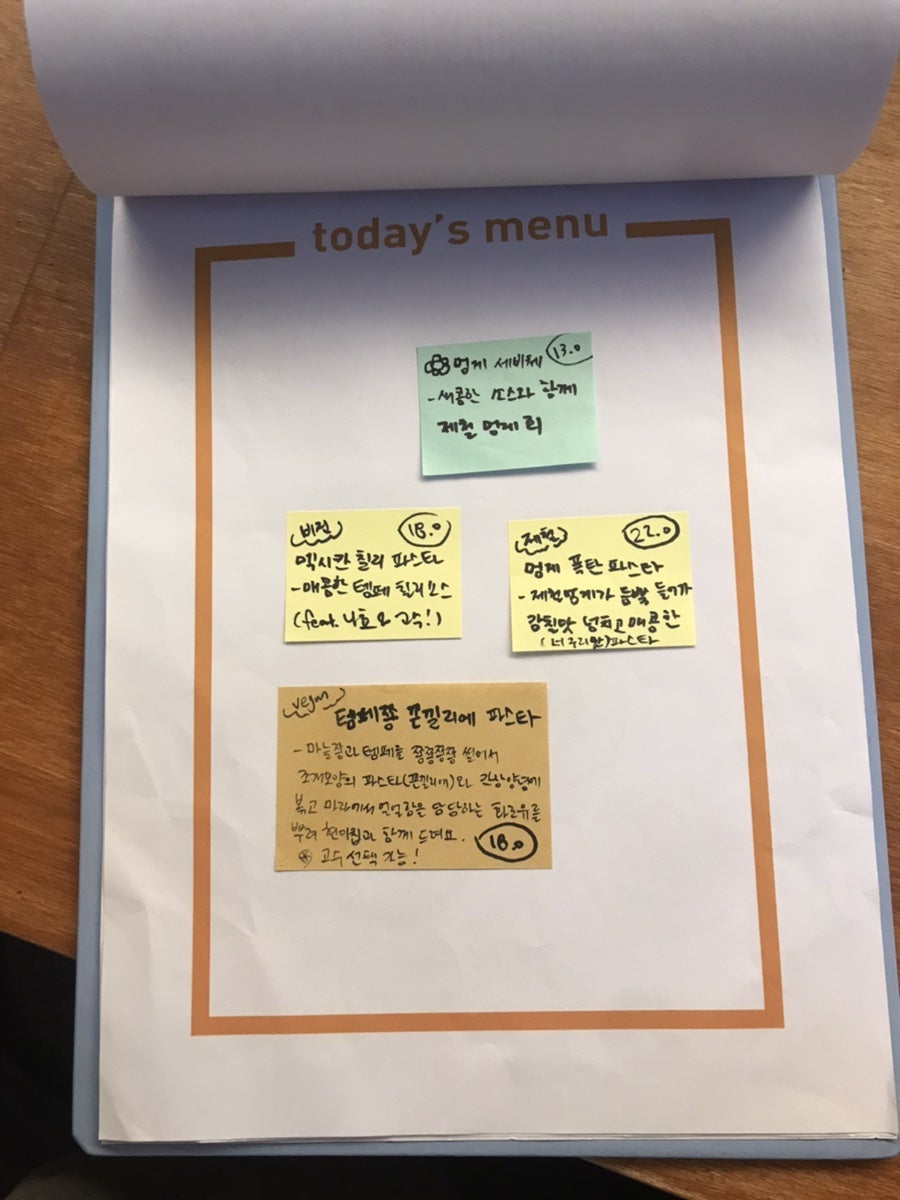 today's menu
멍게 세비체 13.0
- 새콤한 소스와 함께
제철 멍게 회
비건 18.0
멕시칸 칠리 파스타
- 매콤한 템페 칠리소스
(feat. 나쵸와 고수!)
제철 22.0
멍게 폭탄 파스타
- 제철멍게가 듬뿍 들어가
감칠맛 넘치고 매콤한
(너구리맛)파스타
vegan
템페쫑 콘낄리에 파스타
- 마늘쫑과 템페를 쫑쫑쫑쫑 썰어서
조개모양의 파스타(콘낄리에)와 간장양념에
볶고 마라에서 얼얼함을 담당하는 화조유를
뿌려 함께 드려요.
고수 선택 가능! 18.0